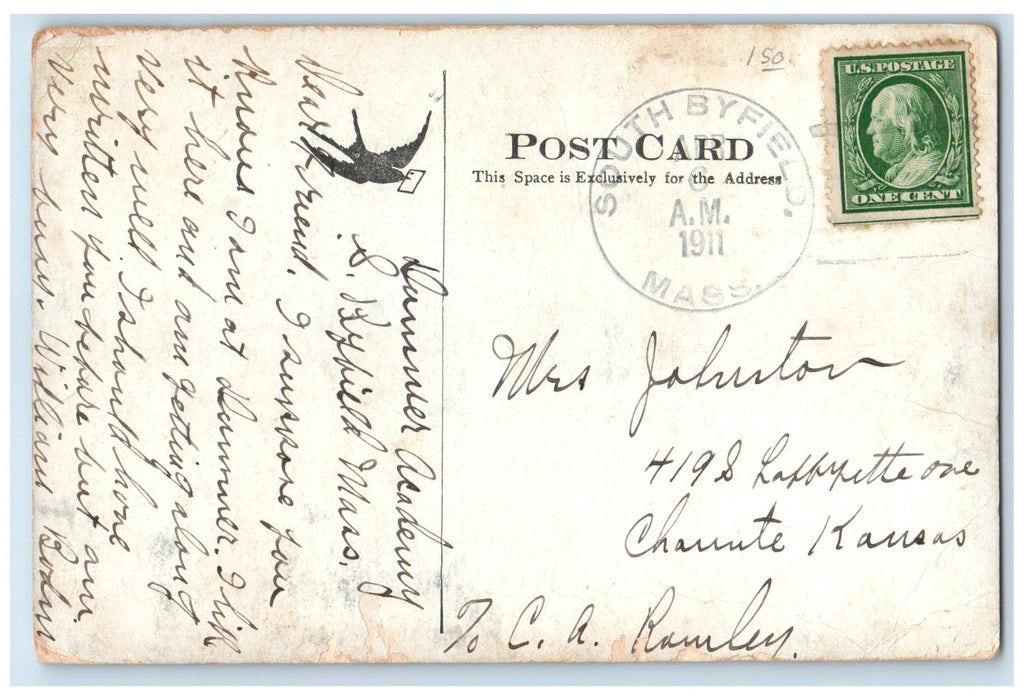 Dummer Academy
S. Byfield Mass.
Dear Friend. I suppose you
know I am at Dummer. I like
it here and am getting along
very well. I should have
written you before but am
very busy. William
POST CARD
This Space is Exclusively for the Address
150
SOUTH BYFIELD,
APR
6
A.M.
1911
MASS.
U.S. POSTAGE
ONE CENT
Mrs Johnston
419 S Lafayette ave
Chanute Kansas
℅ C. A. Rowley.